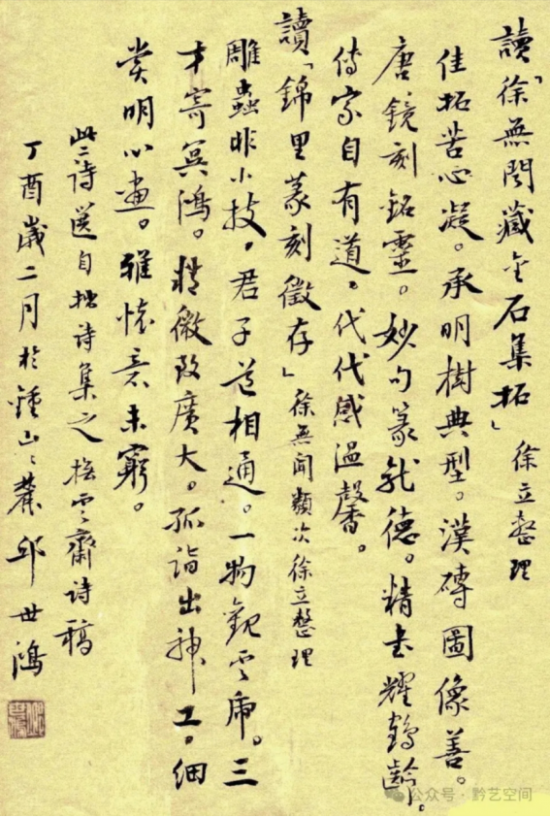 讀「徐無聞藏金石集拓」 徐立整理
佳拓苦心凝。承明樹典型。漢磚圖像善。
唐鏡刻銘靈。妙句篆能德。精書耀鶴齡。
傳家自有道。代代感溫馨。
讀「錦里篆刻徵存」徐無聞類次徐立整理
雕蟲非小技。君子道相通。一物觀雲席。三
才寄冥鴻。精微致廣大。孤詣出神工。細
賞明心畫。雅懷意未窮。
此二詩選自拙詩集之 雲齋詩稿
丁酉歲二月於鍾山之麓邱世鴻
公众号·黔艺空间